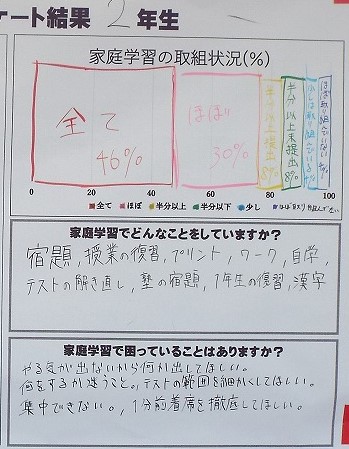 ケート結果 2年生
家庭学習の取組状況(%)
全て
46%
ほぼ
30%
半分以上提出
8%
半分以上未提出
8%
少しは取り組んでいる
ほぼ取り組んでいない
0 20 40 60 80 100
全て ほぼ 半分以上 半分以下 少し ほぼ取り組んでない
家庭学習でどんなことをしていますか?
宿題,授業の復習,プリント,ワーク,自学,
テストの解き直し,塾の宿題,1年生の復習,漢字
家庭学習で困っていることはありますか?
やる気が出ないから何か出してほしい。
何をするか迷うこと。テストの範囲を細かくしてほしい。
集中できない。,1分前着席を徹底してほしい。